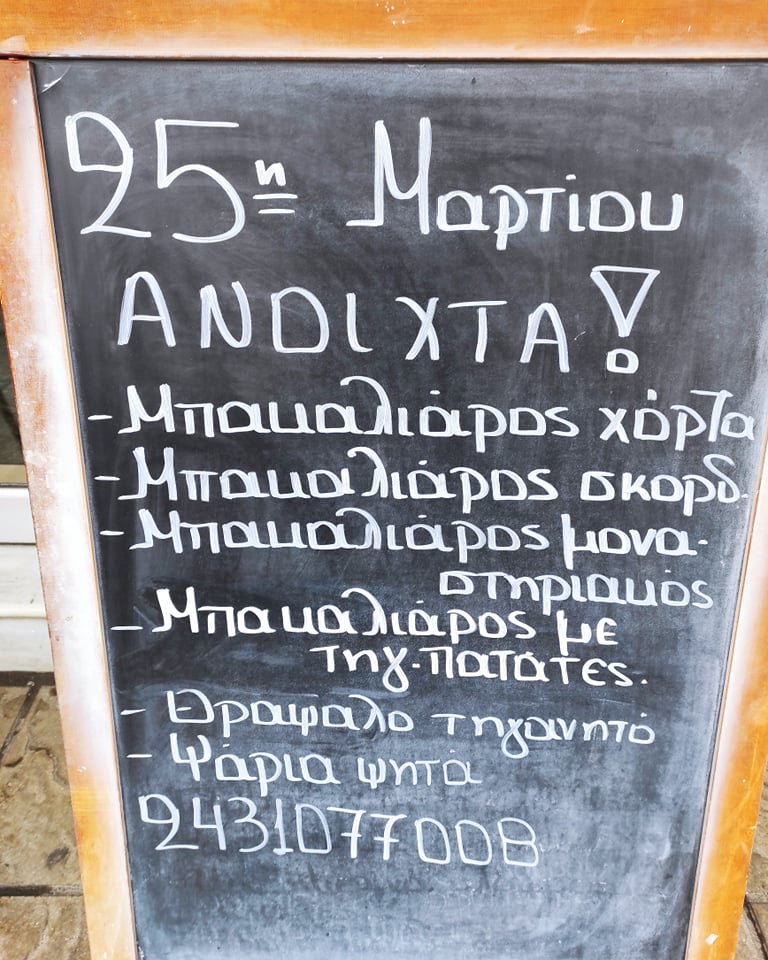 25η Μαρτίου
ΑΝΟΙΧΤΑ!
- Μπακαλιάρος χόρτα
- Μπακαλιάρος σκορδ.
- Μπακαλιάρος μονα-
στηριακός
- Μπακαλιάρος με
τηγ. πατάτες.
- Θράψαλο τηγανητό
- Ψάρια ψητά
2431077008